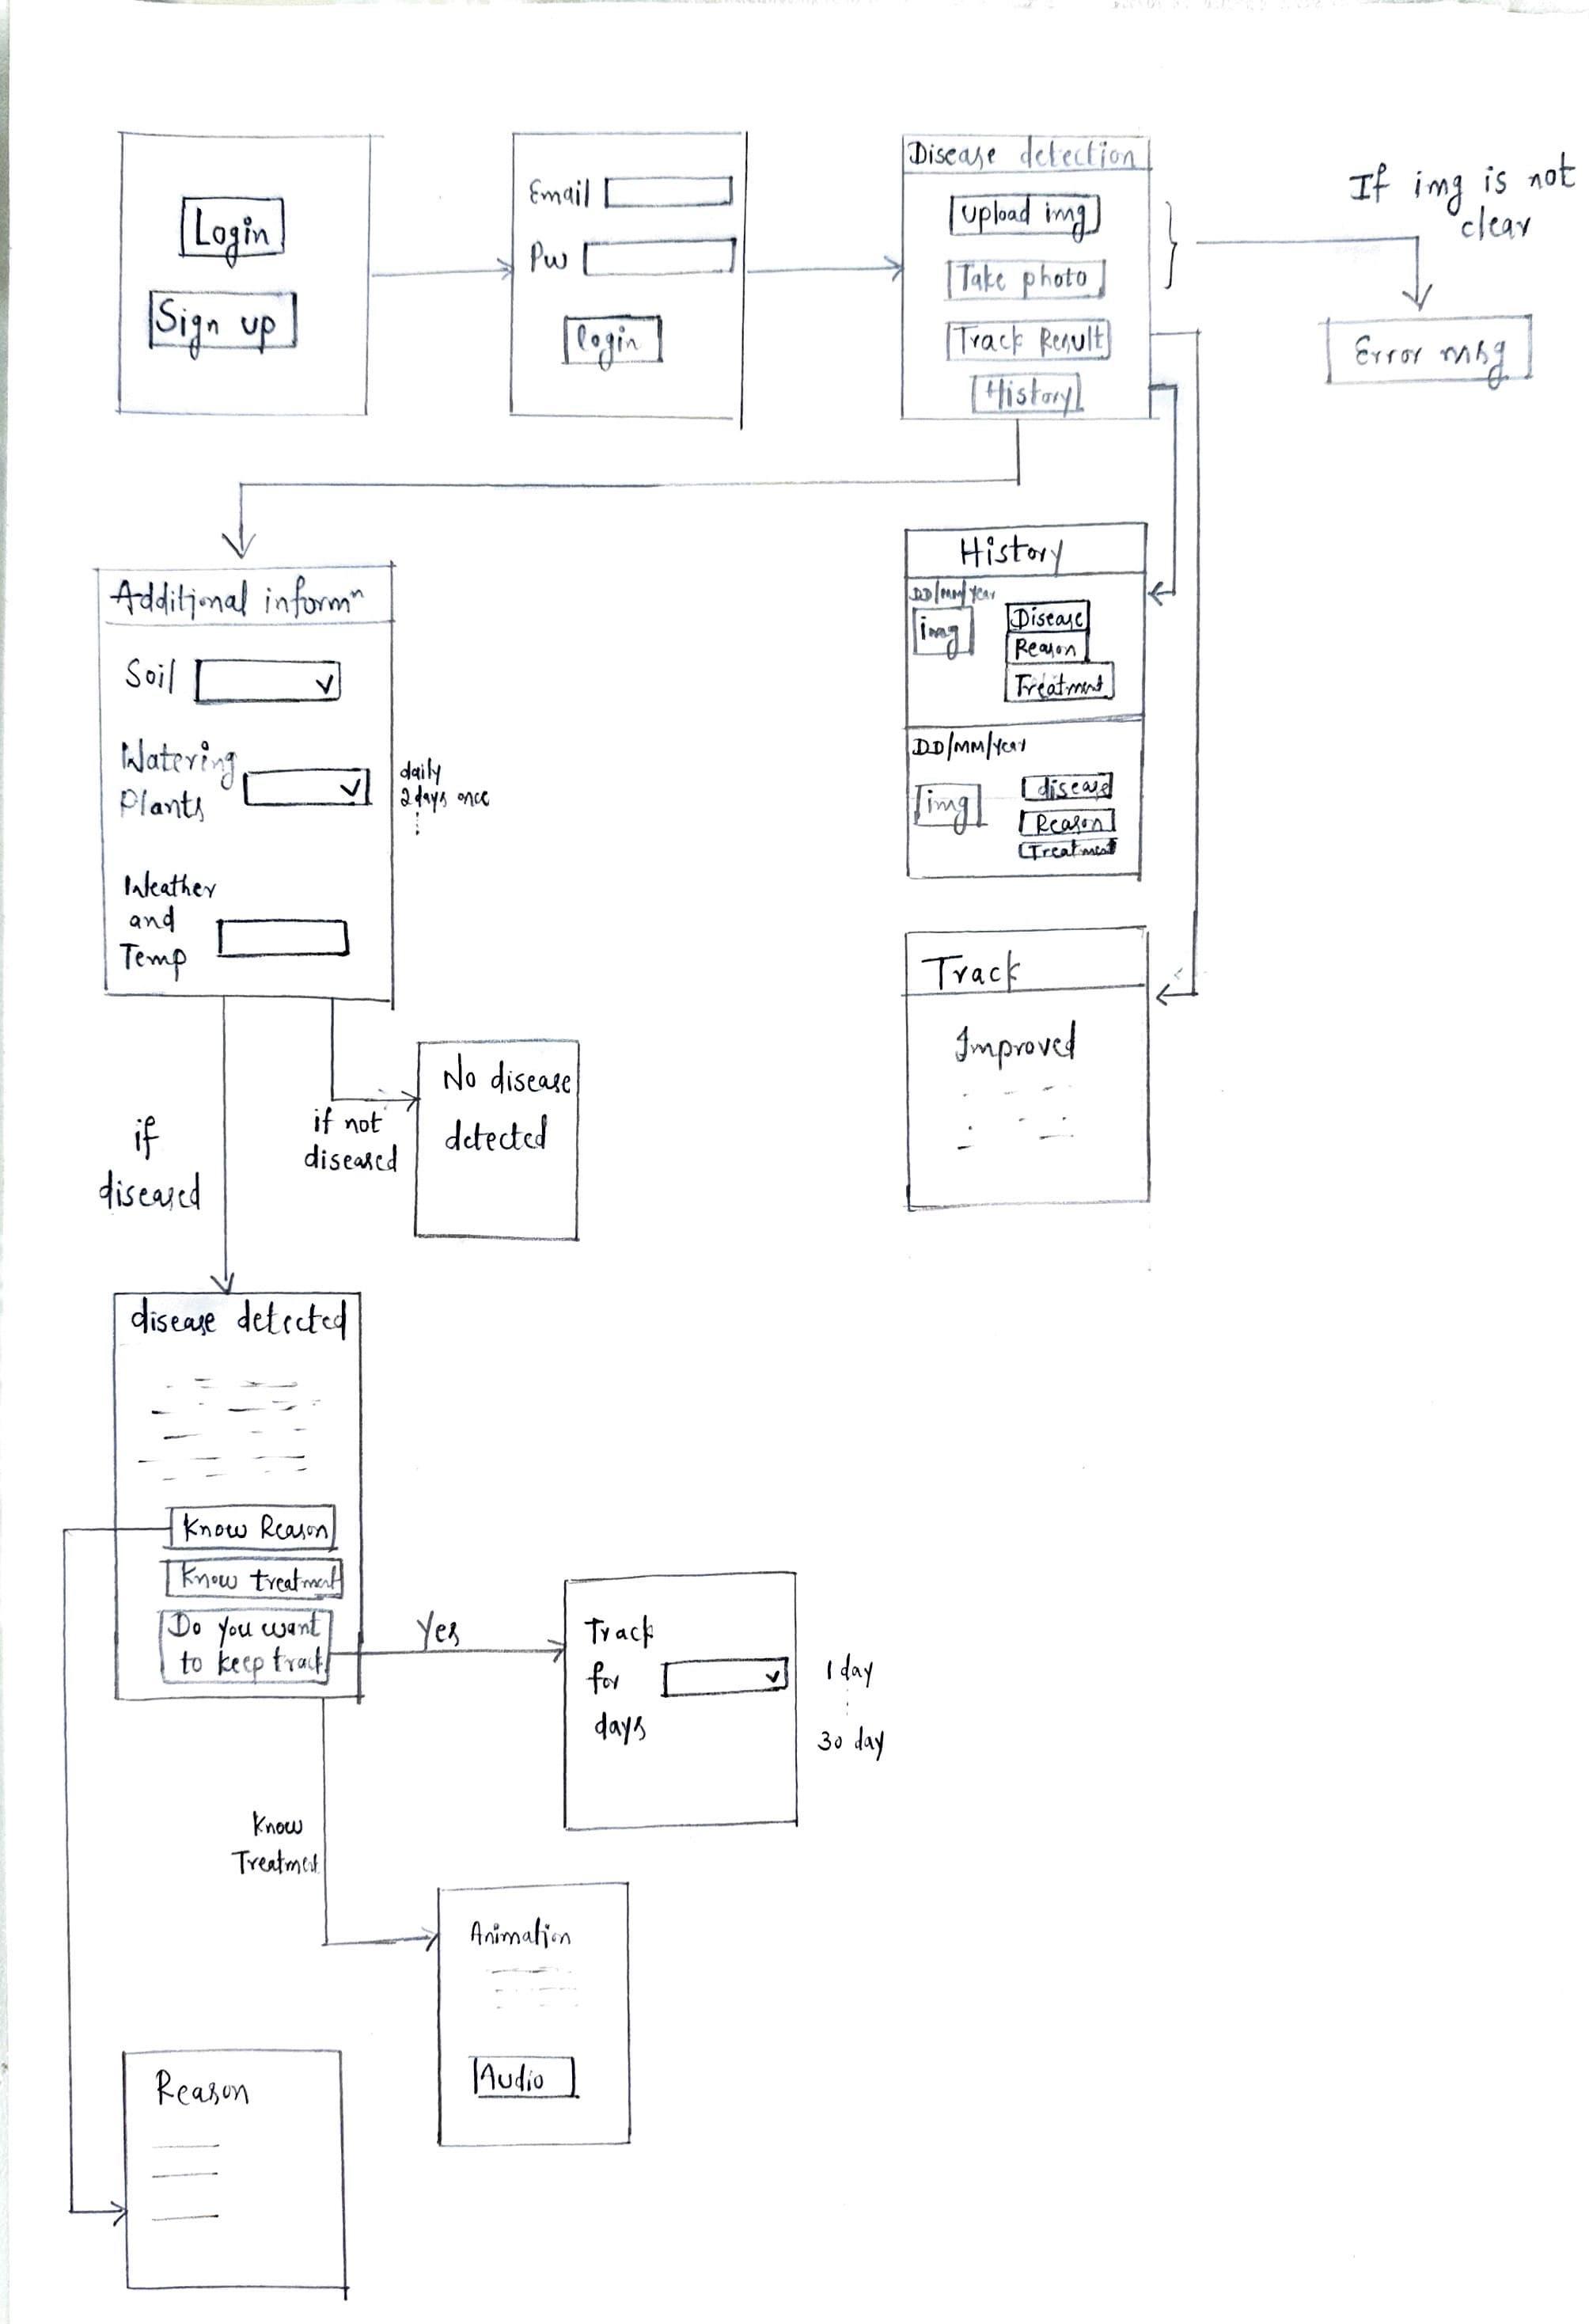 Login
Sign up
Email
Pw
login
Disease detection
Upload img
Take photo
Track Result
History
If img is not
clear
Error msg
Additional informⁿ
Soil
Watering
Plants
daily
2 days once
Weather
and
Temp
History
DD/MM/Year
img
Disease
Reason
Treatment
DD/MM/Year
img
disease
Reason
Treatment
Track
Improved
if
diseased
if not
diseased
No disease
detected
disease detected
Know Reason
Know treatment
Do you want
to keep track
Yes
Track
for
days
1 day
30 day
Know
Treatment
Animation
Audio
Reason